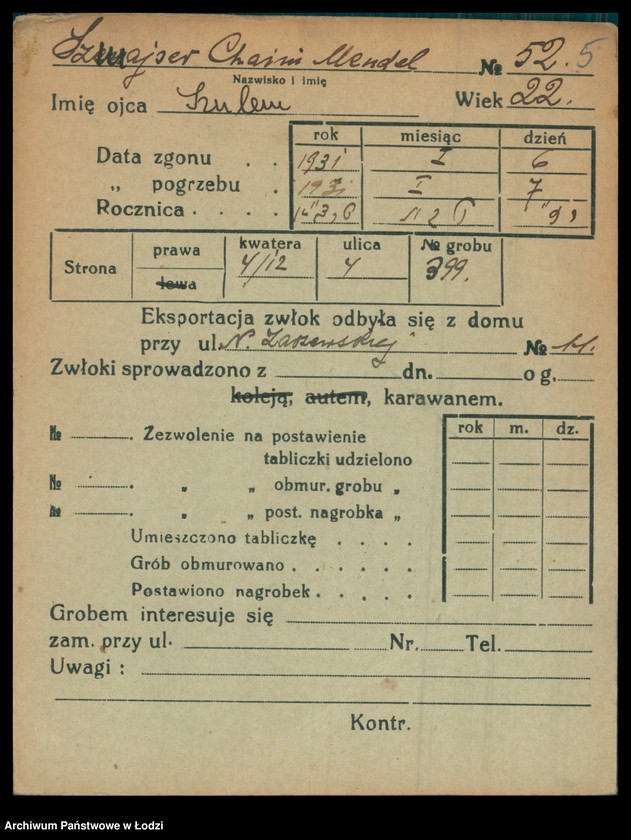 Szmajser Chaim Mendel № 52.5
Nazwisko i imię
Imię ojca Szulem Wiek 22.
rok miesiąc dzień
Data zgonu . . 1931 I 6
„ pogrzebu . 1931 I 7
Rocznica . . . .
Strona prawa kwatera ulica № grobu
lewa 4/12 4 399.
Eksportacja zwłok odbyła się z domu
przy ul. N. Zarzewskiej № 11.
Zwłoki sprowadzono z dn. o g.
koleją, autem, karawanem.
rok m. dz.
№ . Zezwolenie na postawienie
tabliczki udzielono
№ . „ „ obmur. grobu „
№ . „ „ post. nagrobka „
Umieszczono tabliczkę . . . .
Grób obmurowano . . . . . .
Postawiono nagrobek . . . . .
Grobem interesuje się
zam. przy ul. Nr. Tel.
Uwagi :
Kontr.
Archiwum Państwowe w Łodzi